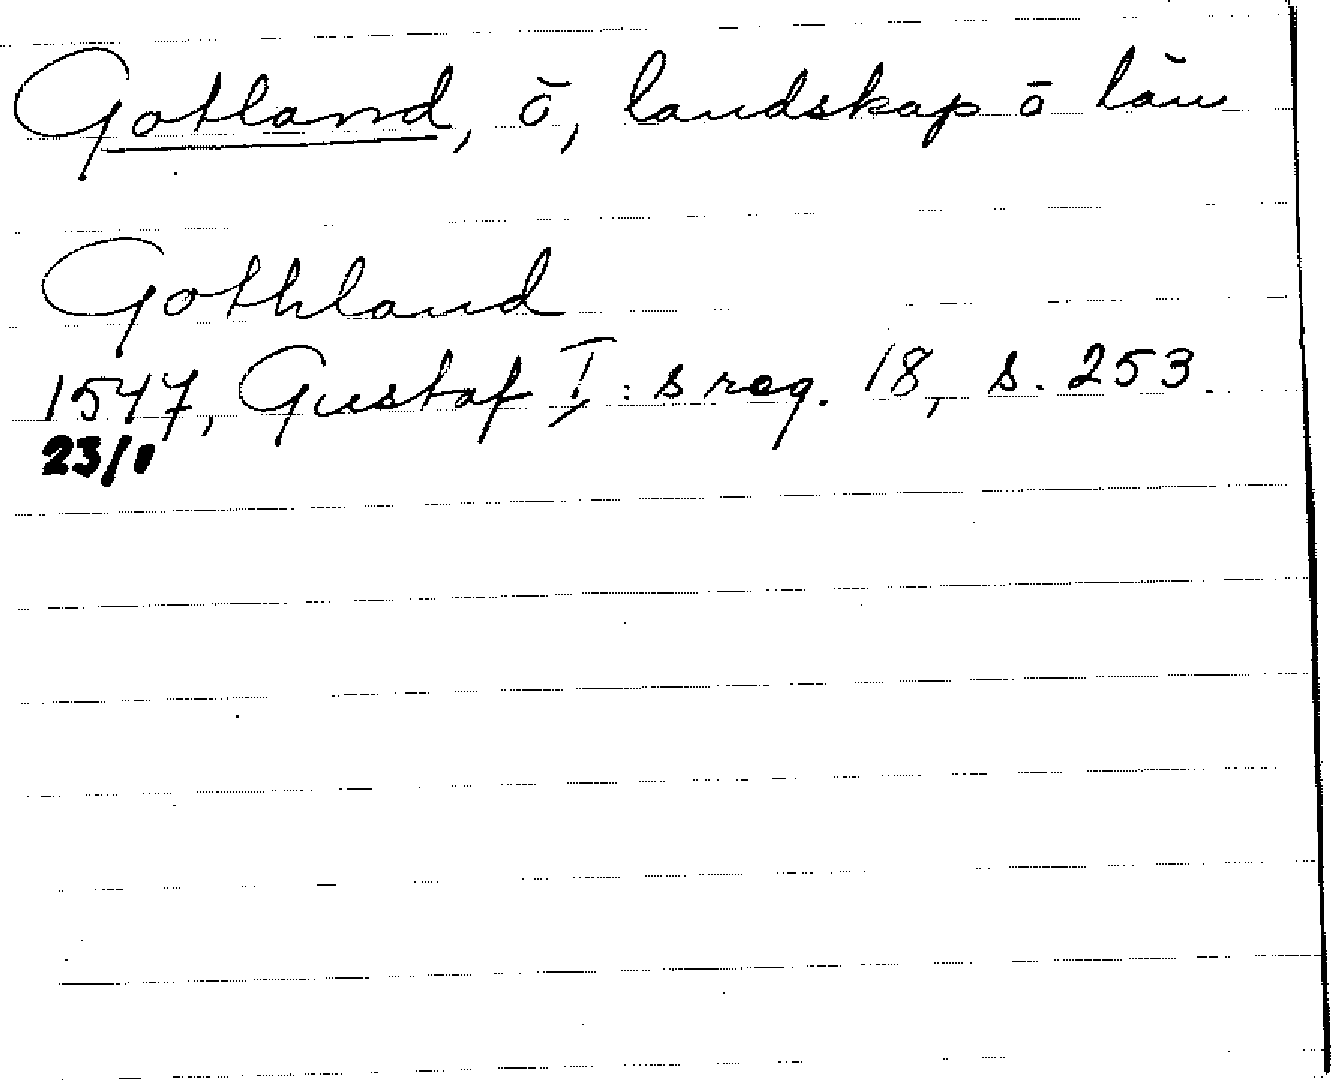 Gotland, ö, landskap o län
Gothland
1547, Gustaf I:s reg. 18, s. 253.